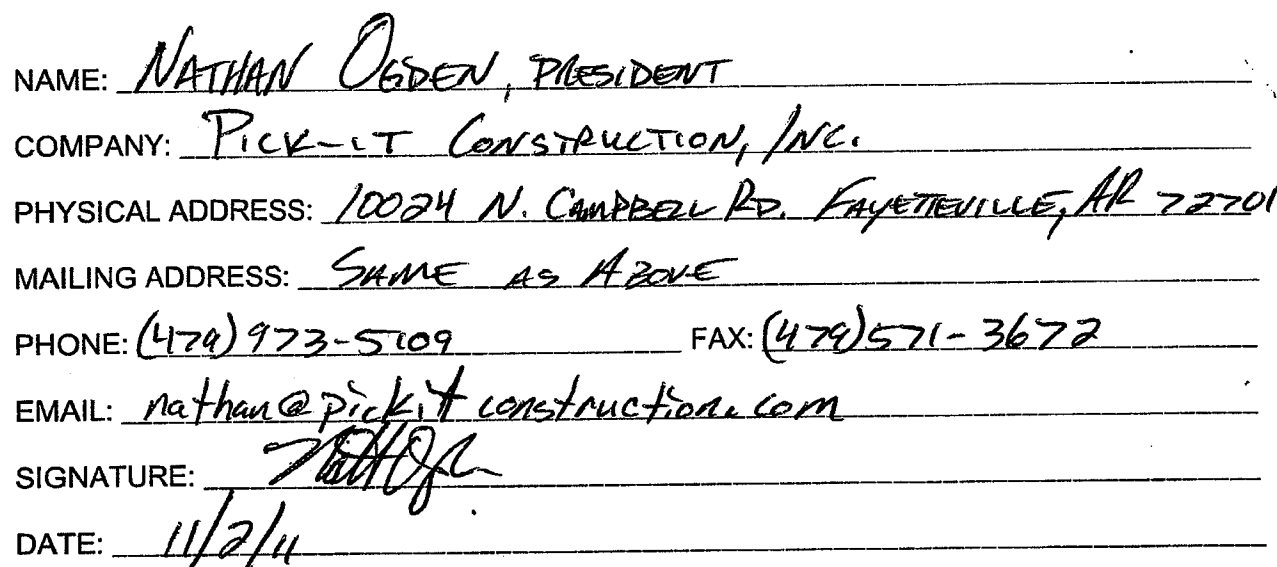 NAME: NATHAN OGDEN, PRESIDENT
COMPANY: PICK-IT CONSTRUCTION, INC.
PHYSICAL ADDRESS: 10024 N. CAMPBELL RD. FAYETTEVILLE, AR 72701
MAILING ADDRESS: SAME AS ABOVE
PHONE: (479) 973-5109 FAX: (479) 571-3672
EMAIL: nathan@pickitconstruction.com
SIGNATURE:
DATE: 11/2/11